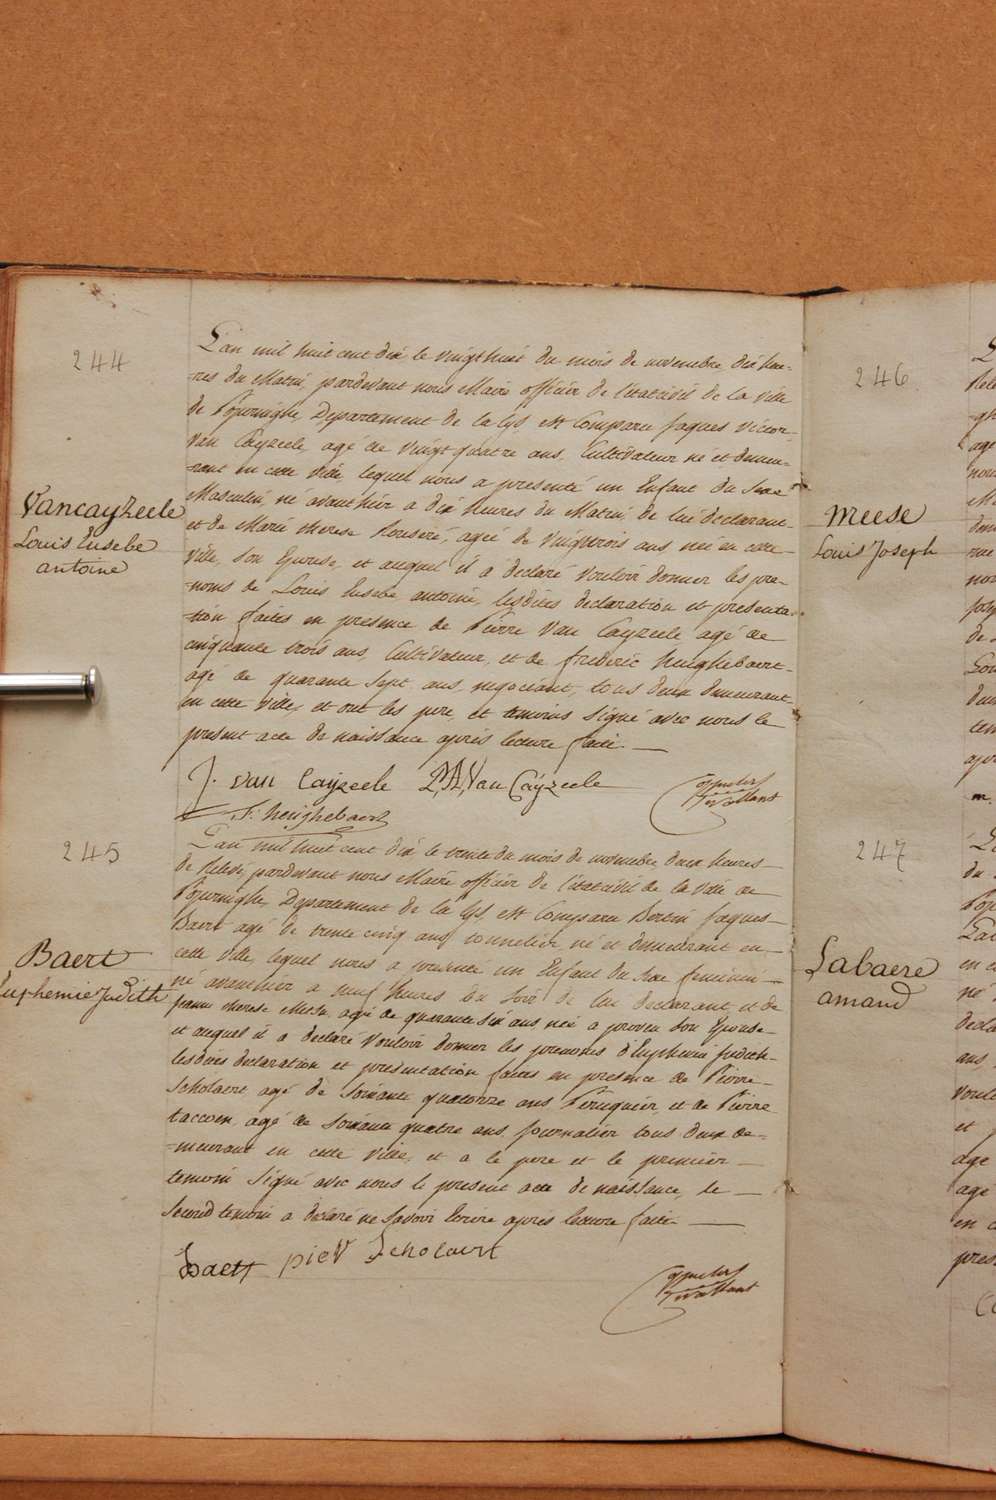 244
Vancayzeele
Louis Eusebe
antoine
L'an mil huit cent dix le vingt huit du mois de novembre, dix heu-
-res du Matin, pardevant nous Maire officier de l'état civil de la Ville
de Poperinghe, Departement de la Lys, est Comparu Jaques Victor
Van Cayzeele, agé de vingt quatre ans, Cultivateur né et demeu-
-rant en cette Ville, lequel nous a presenté un Enfant du Sexe
Masculin, né avanthier a dix heures du Matin, de lui declarant
et de Marie therese Rouseré, agée de Vingtrois ans née en cette
Ville, Son Epouse, et auquel il a déclaré Vouloir donner les pre-
-noms de Louis Eusebe antoine, lesdites declaration et presenta-
-tion faites en presence de Pierre Van Cayzeele agé de
cinquante trois ans, Cultivateur, et de frederic heughebaert
agé de quarante Sept ans, negociant, tous deux demeurant
en cette Ville, et ont les pere, et temoins Signé avec nous le
present acte de naissance après lecture faite.
J. van Cayzeele P.A. Van Cayzeele
F. heughebaert
245
Baert
Euphemie Judith
L'an mil huit cent dix, le trente du mois de novembre deux heures
de Relevé, pardevant nous Maire officier de l'état civil de la Ville de
Poperinghe, Departement de la Lys, est Comparu Bertin Jaques
Baert agé de trente cinq ans, tonnelier, né et demeurant en
cette Ville, lequel nous a presenté un Enfant du Sexe feminin
né avanthier a neuf heures du Soir de lui declarant, et de
jeanne therese Merse, agée de quarante dix ans, née a proven Son Epouse
et auquel il a declaré Vouloir donner les prenoms d'Euphemie Judith
lesdites declaration et presentation faites en presence de Pierre
Scholaert, agé de Soixante quatorze ans Peruquier, et de Pierre
taccoen, agé de Soixante quatre ans, journalier tous deux de-
-meurant en cette Ville, et a le pere et le premier
temoin Signé avec nous le present acte de naissance, le
Second temoin a déclaré ne Savoir Ecrire après lecture faite.
Baert pieV Scholaert
246
Meese
Louis Joseph
247
Labaere
amand